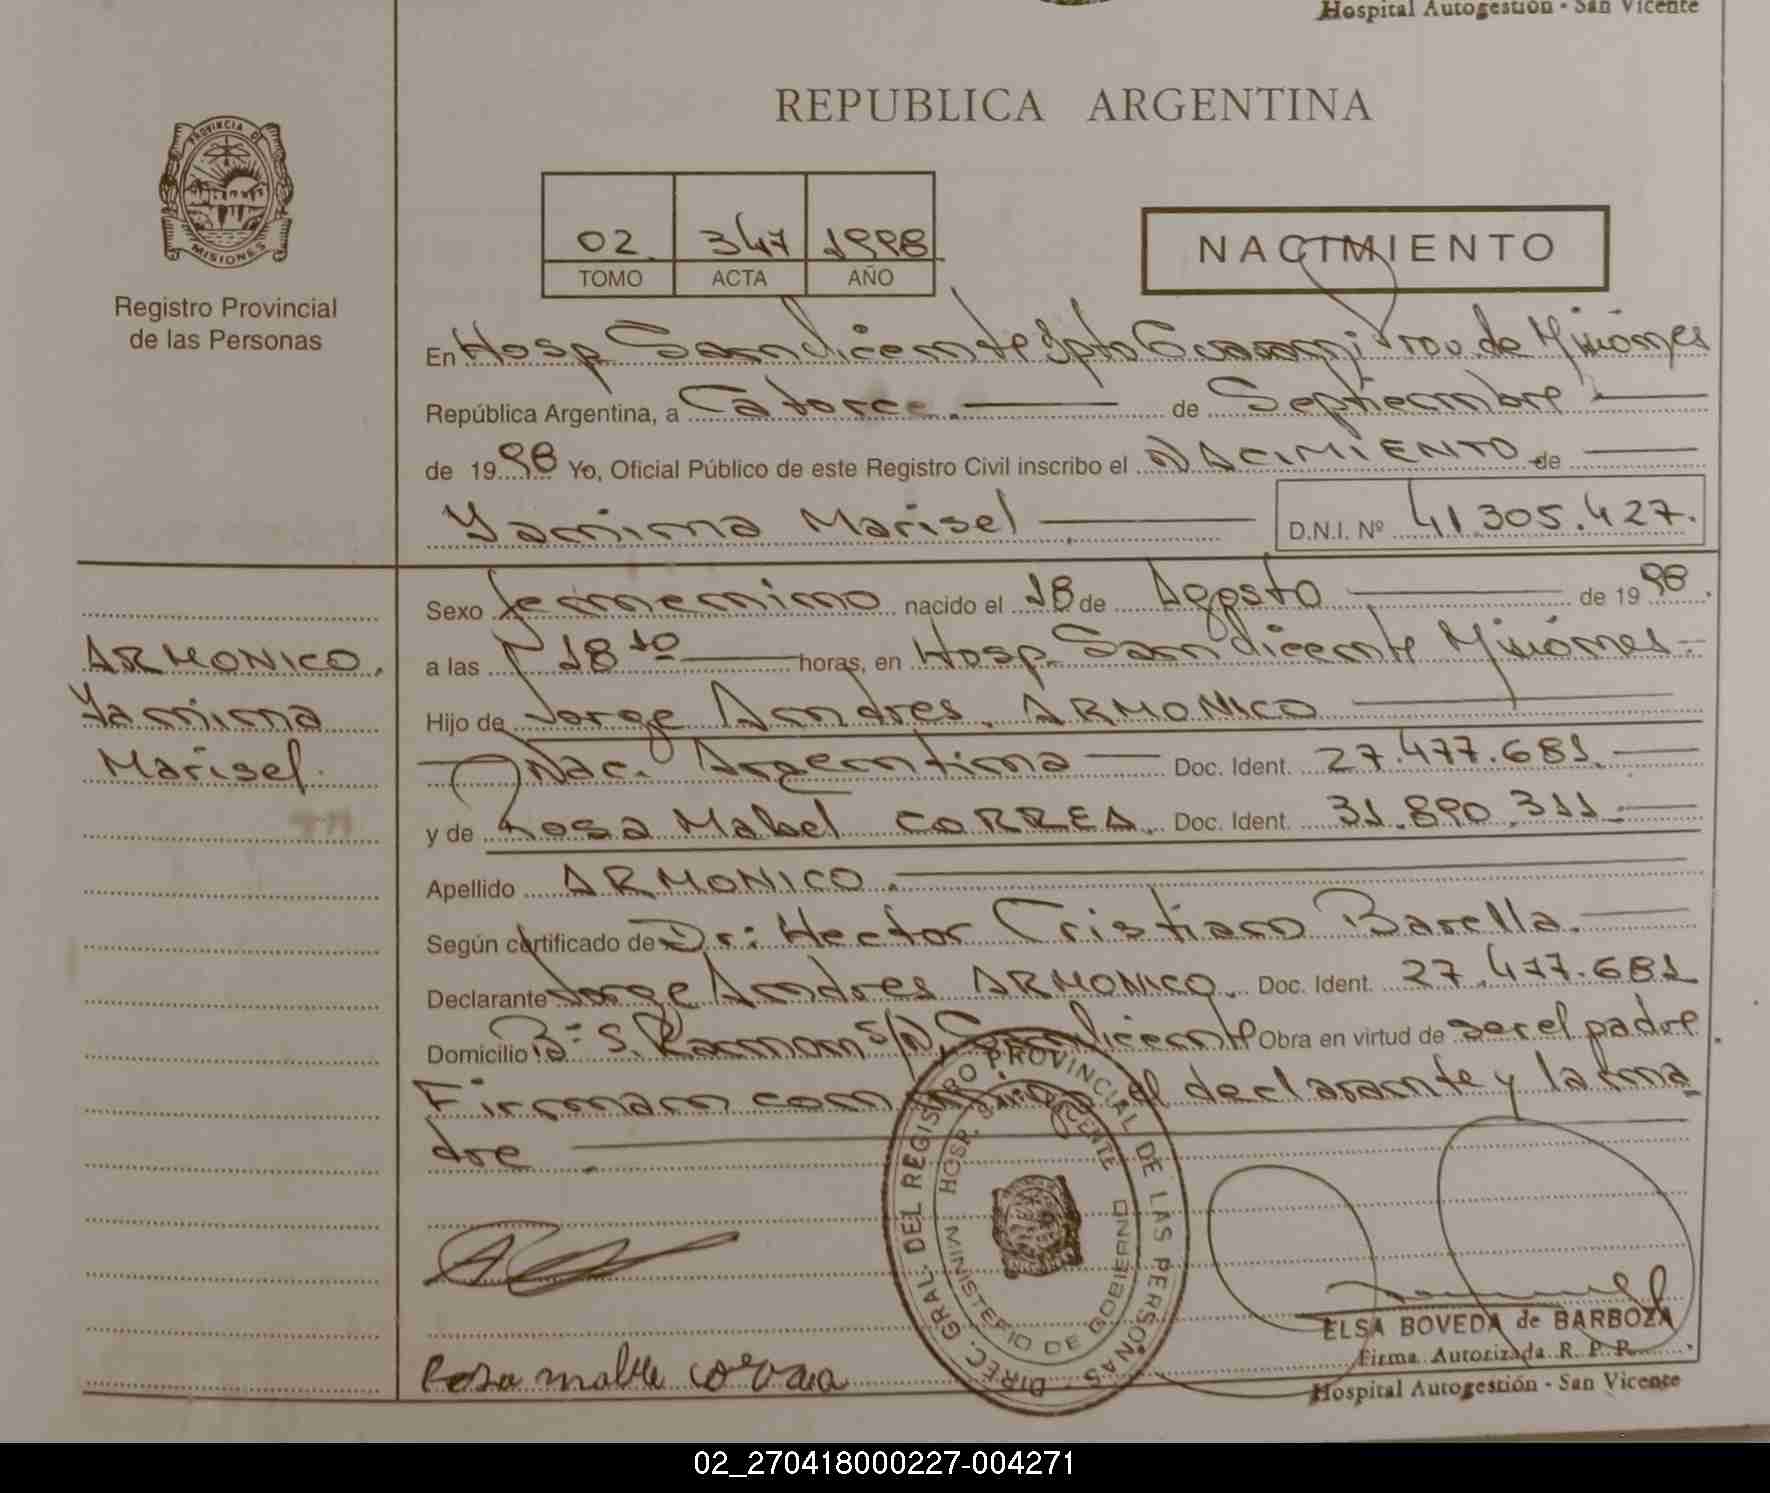 Hospital Autogestión - San Vicente
REPUBLICA ARGENTINA
PROVINCIA DE
MISIONES
Registro Provincial
de las Personas
02 347 1998
TOMO ACTA AÑO
NACIMIENTO
En Hosp San Vicente Dpto Guarani Prov. de Misiones
República Argentina, a Catorce. de Septiembre
de 1998 Yo, Oficial Público de este Registro Civil inscribo el NACIMIENTO de
Yamima Marisel D.N.I. Nº 41.305.427.
Sexo femenino nacido el 18 de Agosto de 1998.
a las 18 10 horas, en Hosp. San Vicente Misiones
Hijo de Jorge Andres ARMONICO
Nac. Argentina Doc. Ident. 27.477.681.
y de Rosa Mabel CORREA. Doc. Ident. 31.890.311.
Apellido ARMONICO.
Según certificado de Dr: Hector Cristian Barella.
Declarante Jorge Andres ARMONICO. Doc. Ident. 27.477.681
Domicilio Bº S. Ramon S/N, San Vicente Obra en virtud de ser el padre
Firman conmigo el declarante y la ma
dre
ARMONICO.
Yamima
Marisel.
DIREC. GRAL. DEL REGISTRO PROVINCIAL DE LAS PERSONAS
HOSP. SAN VICENTE
MINISTERIO DE GOBIERNO
ELSA BOVEDA de BARBOZA
Firma Autorizada R. P. P.
Hospital Autogestión - San Vicente
Rosa
02_270418000227-004271